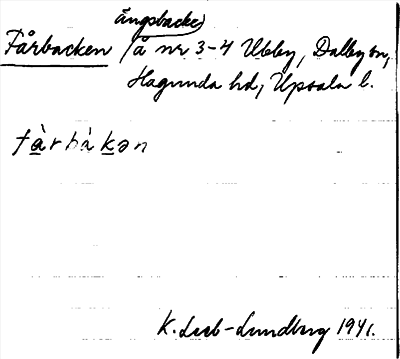 Ängsbacke)
Fårbacken /å nr 3-4 Ubby, Dalby sn,
Hagunda hd, Upsala l.
fàrbákən
K. Lieb-Lundberg 1941.